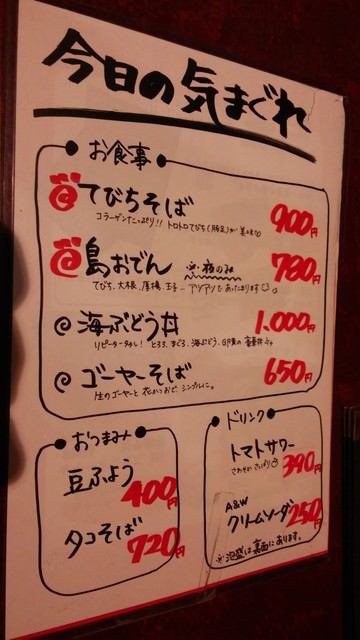 今日の気まぐれ
お食事
てびちそば 900円
コラーゲンたっぷり!! トロトロてびち(豚足)が
島おでん ※夜のみ 780円
てびち、大根、厚揚、玉子 - アツアツで あったまります
海ぶどう丼 1.000円
リピーター多し! とろろ、まぐろ、海ぶどう、卵黄の
ゴーヤーそば 650円
生のゴーヤーと 花かつおで、シンプルに。
おつまみ
豆ふよう 400円
タコそば 720円
ドリンク
トマトサワー 390円
さわやか さっぱり
A&W
クリームソーダ 250円
※泡盛は裏面にあります。